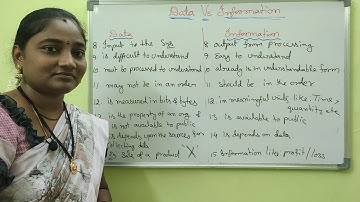 Data Vs Information
Data
8 Input to the Sys
9 is difficult to understand
10 must be processed to understand
11 may not be in an order
12 is measured in bits & bytes
is the property of an org. &
is not available to public
is depends upon the sources for
collecting data
Sale of a product X
Information
8 output from processing
9 Easy to understand
10 already is in understandable form
11 should be in the order
12 in meaningful units like: Time,
quantity etc
13 is available to public
14 is depends on data
15 Information like profit/loss